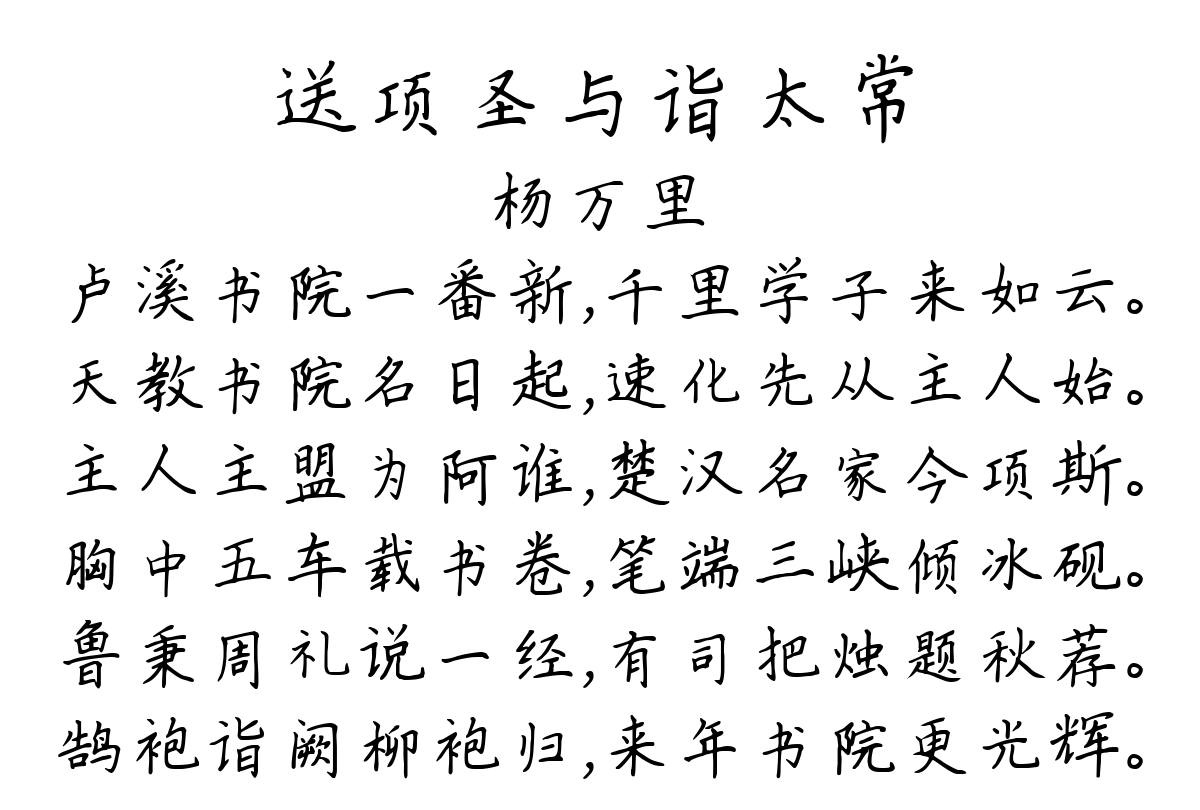 送项圣与诣太常
杨万里
卢溪书院一番新,千里学子来如云。
天教书院名日起,速化先从主人始。
主人主盟为阿谁,楚汉名家今项斯。
胸中五车载书卷,笔端三峡倾冰砚。
鲁秉周礼说一经,有司把烛题秋荐。
鹄袍诣阙柳袍归,来年书院更光辉。